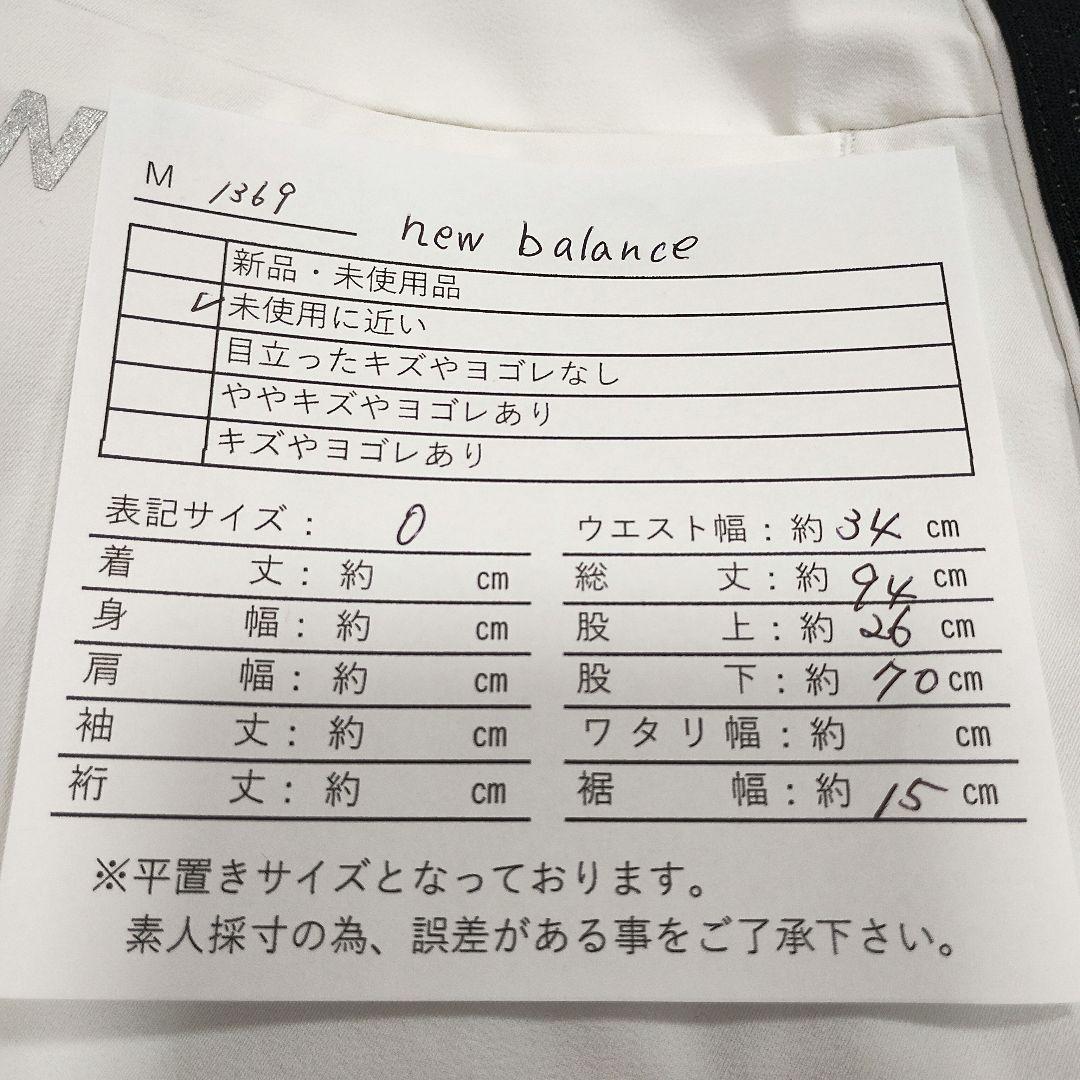 N
M 1369
new balance
新品・未使用品
✓ 未使用に近い
目立ったキズやヨゴレなし
ややキズやヨゴレあり
キズやヨゴレあり
表記サイズ： 0
着丈：約 cm
身幅：約 cm
肩幅：約 cm
袖丈：約 cm
裄丈：約 cm
ウエスト幅：約34 cm
総丈：約 94 cm
股上：約 26 cm
股下：約 70 cm
ワタリ幅：約 cm
裾幅：約 15 cm
※平置きサイズとなっております。
素人採寸の為、誤差がある事をご了承下さい。